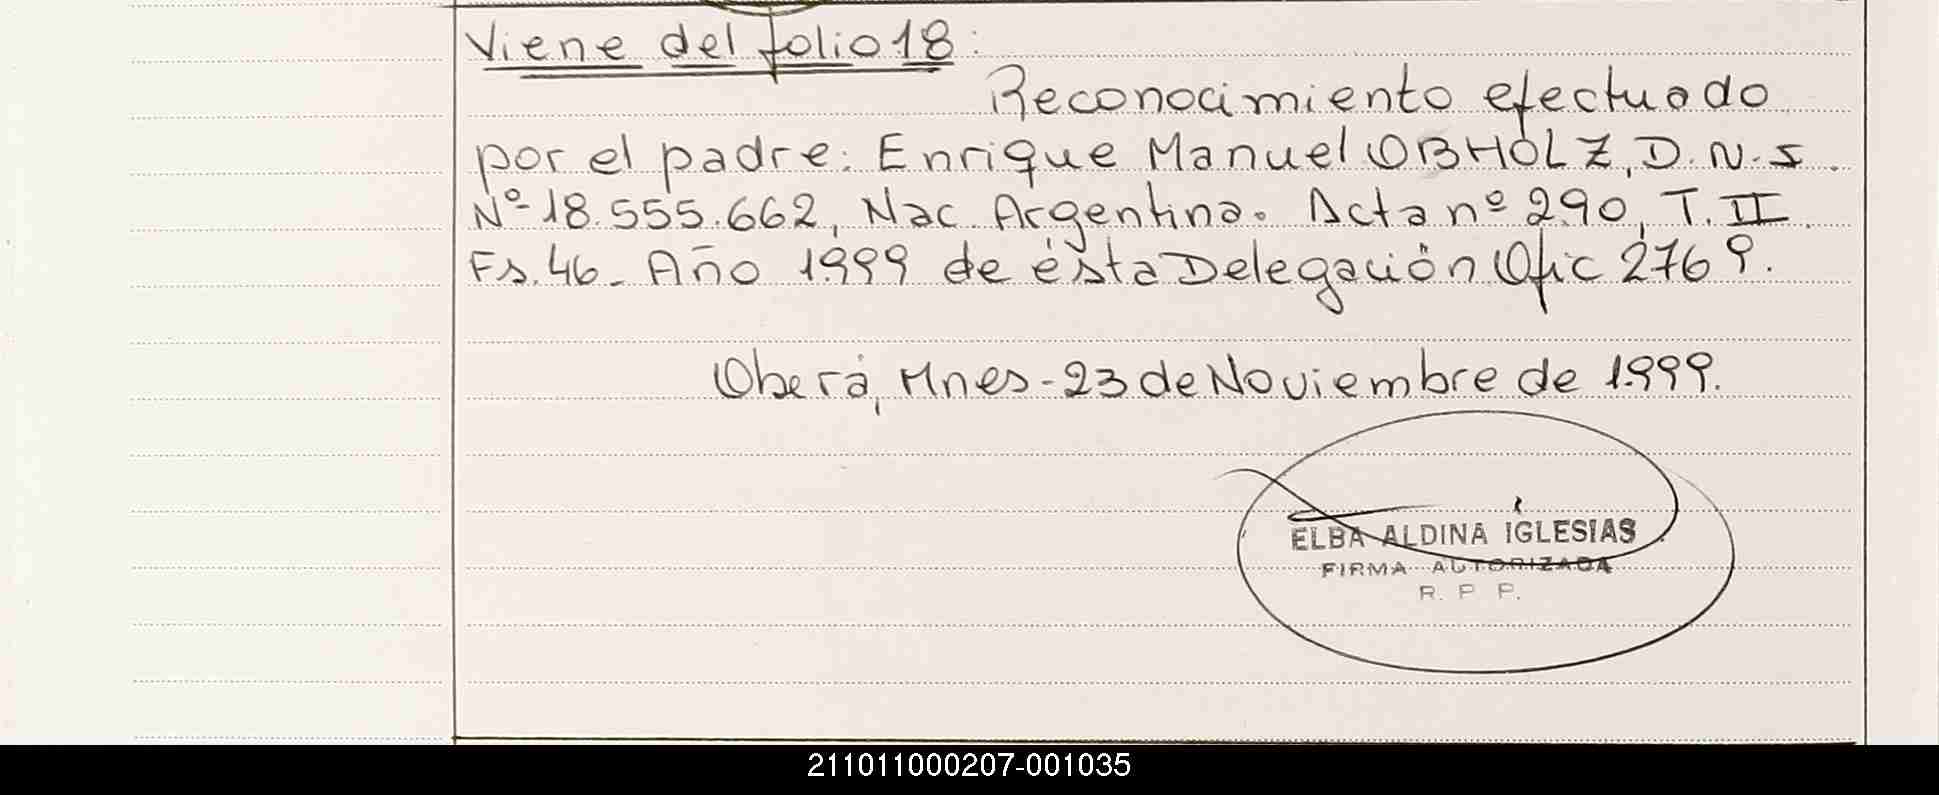 Viene del folio 18:
Reconocimiento efectuado
por el padre: Enrique Manuel OBHOLZ, D.N.I.
Nº 18.555.662, Nac. Argentina. Acta nº 290, T. II
Fs. 46 - Año 1999 de ésta Delegación Ofic 2769.
Oberá, Mnes - 23 de Noviembre de 1.999.
ELBA ALDINA IGLESIAS
FIRMA AUTORIZADA
R. P. P.
211011000207-001035